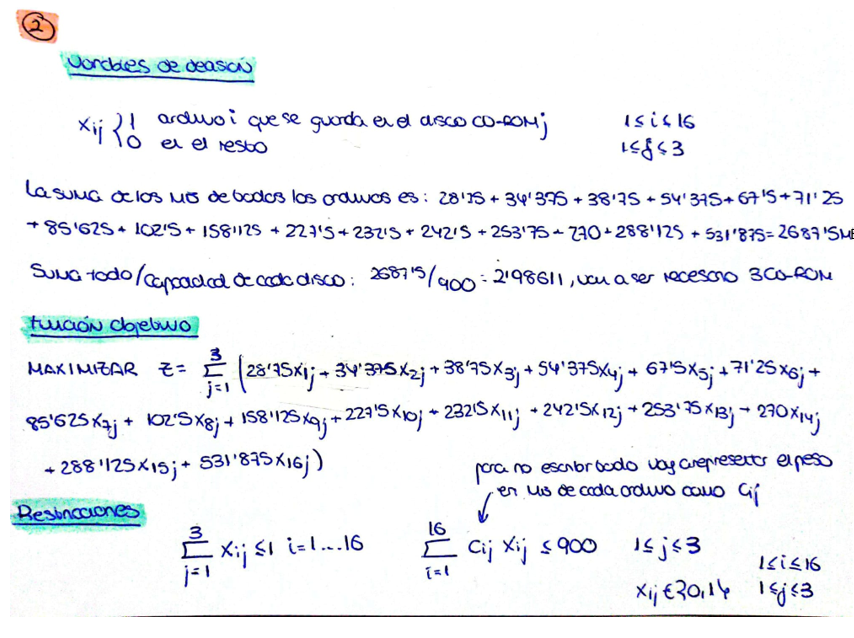 2
Variables de decisión
Xij { 1 archivo i que se guarda en el disco CD-ROM j 1≤i≤16
0 en el resto 1≤j≤3
La suma de los MB de todos los archivos es: 28'75 + 34'375 + 38'75 + 54'375 + 67'5 + 71'25
+ 85'625 + 102'5 + 158'125 + 227'5 + 232'5 + 242'5 + 253'75 + 270 + 288'125 + 531'875 = 2687'5MB
Suma todo/Capacidad de cada disco: 2687'5/900 = 2'98611, van a ser necesario 3 CD-ROM
Función objetivo
MAXIMIZAR Z = 3 Σ j=1 (28'75X1j + 34'375X2j + 38'75X3j + 54'375X4j + 67'5X5j + 71'25X6j +
85'625X7j + 102'5X8j + 158'125X9j + 227'5X10j + 232'5X11j + 242'5X12j + 253'75X13j + 270X14j
+ 288'125X15j + 531'875X16j)
para no escribir todo voy a representar el peso
en MB de cada archivo como Cij
Restricciones
3 Σ j=1 Xij ≤ 1 i=1...16 16 Σ i=1 Cij Xij ≤ 900 1≤j≤3
Xij € {0,1} 1≤i≤16 1≤j≤3